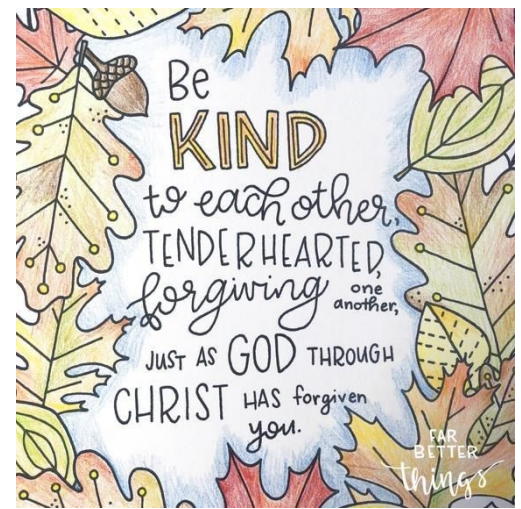 Be
KIND
to each other,
TENDERHEARTED,
forgiving one
another,
JUST AS GOD THROUGH
CHRIST HAS forgiven
you.
FAR
BETTER
things